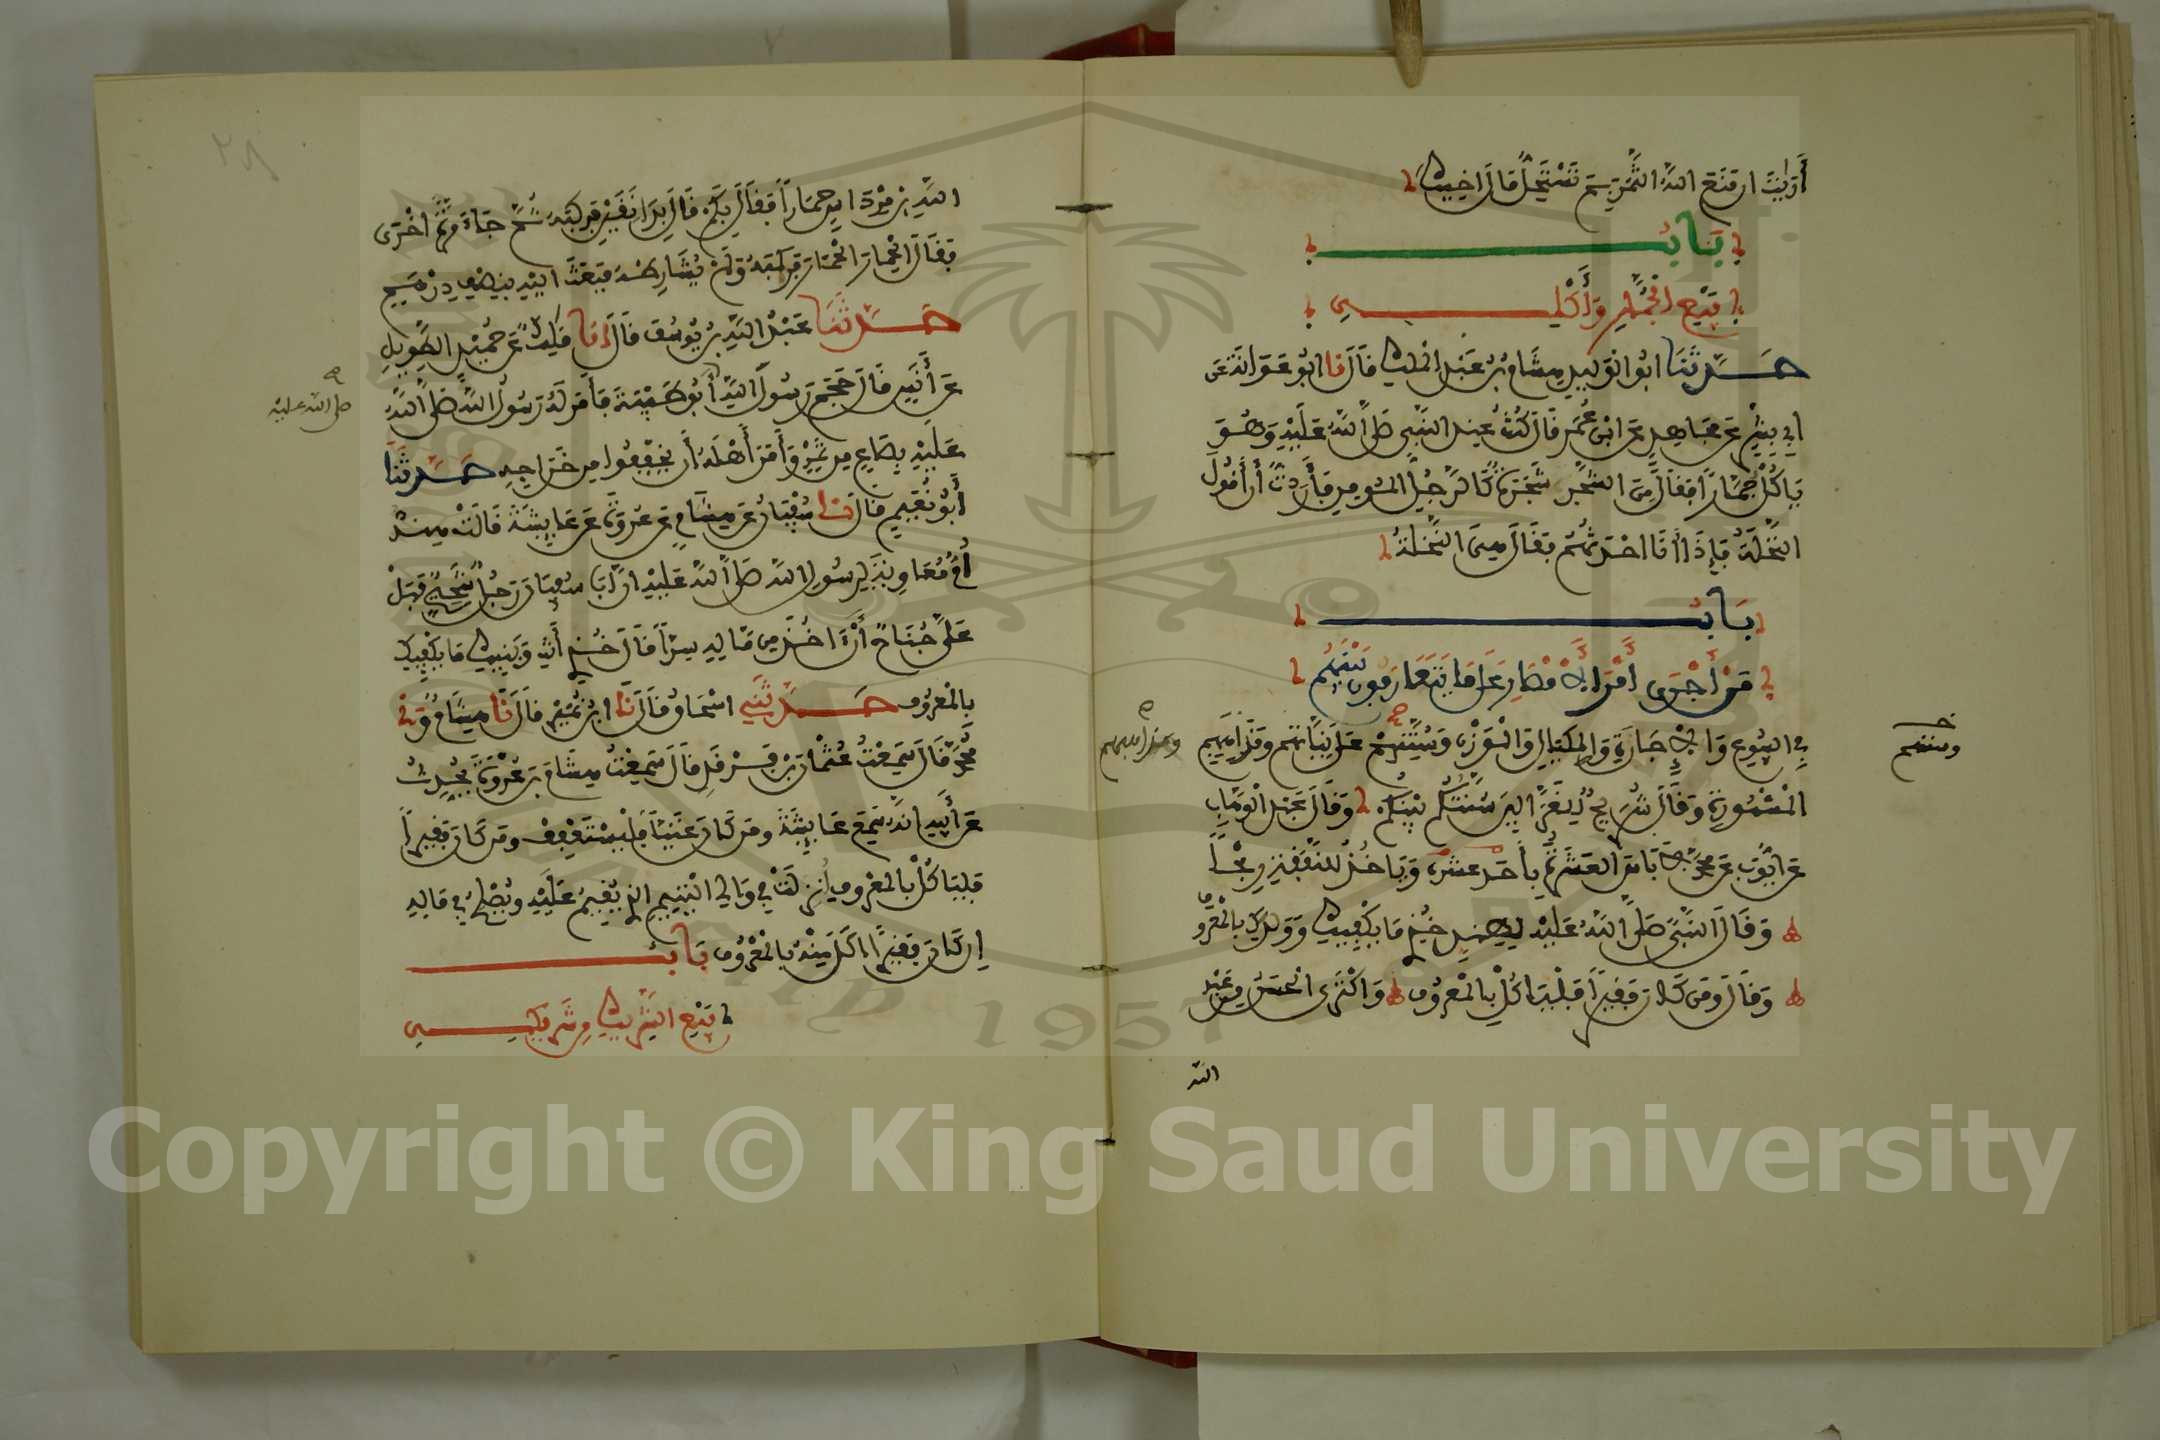 أَرَأَيْتَ ان مَنَعَ اللَّهُ الثَّمَرَ بِمَ تَسْتَحِلُّ مَالَ اخِيكَ
بَابُ
بَيْعِ الجُمَّارِ وَأَكْلِهِ
حَدَّثَنَا ابُو الوَلِيدِ هِشَامُ بْنُ عَبْدِ الملك قَالَ نا ابُو عَوَانَةَ عَن
ابي بِشْرٍ عَن مُجَاهِدٍ عَن ابْنِ عُمَرَ قَالَ كُنْتُ عِنْدَ النَّبِي صَلَّى اللَّهُ عَلَيْهِ وَهُوَ
يَاكُلُ جُمَّاراً فَقَالَ مِنَ الشَّجَرِ شَجَرَةٌ كَالرَّجُلِ المُومِنِ فَأَرَدْتُ أَن أَقُولَ
النَّخْلَةُ فَإِذَا أَنَا احْدَثُهُمْ فَقَالَ هِيَ النَّخْلَةُ
بَابُ
مَنْ أَجْرَى أَمْرَ أَهْلِ الأَمْصَارِ عَلَى مَا يَتَعَارَفُونَ بَيْنَهُمْ
فِي البُيُوعِ وَالإِجَارَةِ وَالمِكْيَالِ وَالوَزْنِ وَسُنَّتِهِمْ عَلَى نِيَّاتِهِمْ وَمَذَاهِبِهِم
المَشْهُورَةِ وَقَالَ شُرَيْحٌ لِلْغَزَّالِينَ سُنَّتُكُمْ بَيْنَكُمْ وَقَالَ عَبْدُ الوَهَّابِ
عَن ايُّوبَ عَن مُحَمَّدٍ لاَ بَاسَ العَشَرَةُ بِأَحَدَ عَشَرَ وَيَاخُذُ لِلنَّفَقَةِ رِبْحاً
وَقَالَ النَّبِيُّ صَلَّى اللَّهُ عَلَيْهِ لِهِنْدٍ خُذِي مَا يَكْفِيكِ وَوَلَدَكِ بالمَعْرُوفِ
وَقَالَ وَمَن كَانَ فَقِيراً فَلْيَاكُلْ بِالمَعْرُوفِ وَاكْتَرَى الحَسَنُ مِن عَبْدِ
الله
وسننهم
ومذاهبهم
اللَّهِ بْنِ مِرْدَاسٍ حِمَاراً فَقَالَ بِكَمْ قَالَ بِدَانَقَيْنِ فَرَكِبَهُ ثُمَّ جَاءَ مَرَّةً اخْرَى
فَقَالَ الحِمَارَ الحِمَارَ فَرَكِبَهُ وَلَمْ يُشَارِطْهُ فَبَعَثَ الَيْهِ بِنِصْفِ دِرْهَمٍ
حَدَّثَنَا عَبْدُ اللَّهِ بْنُ يُوسُفَ قَالَ أنا مَلِكٌ عَن حُمَيْدٍ الطَّوِيلِ
عَن أَنَسٍ قَالَ حَجَمَ رَسُولَ اللَّهِ أَبُو طَيْبَةَ فَأَمَرَ لَهُ رَسُولُ اللَّهِ صَلَّى اللَّهُ
عَلَيْهِ بِصَاعٍ مِن تَمْرٍ وَأَمَرَ أَهْلَهُ أَن يُخَفِّفُوا مِن خَرَاجِهِ حَدَّثَنَا
أَبُو نُعَيْمٍ قَالَ نا سُفْيَانُ عَن هِشَامٍ عَن عُرْوَةَ عَن عَايِشَةَ قَالَتْ هِنْدٌ
أُمُّ مُعَاوِيَةَ لِرَسُولِ اللَّهِ صَلَّى اللَّهُ عَلَيْهِ انَّ أَبَا سُفْيَانَ رَجُلٌ شَحِيحٌ فَهَلْ
عَلَيَّ جُنَاحٌ أَنَ اخُذَ مِن مَالِهِ سِرّاً قَالَ خُذِي أَنْتِ وَبَنِيكِ مَا يَكْفِيكِ
بالمَعْرُوفِ حَدَّثَنِي اسْحَاقُ قَالَ نَا ابْنُ نُمَيْرٍ قَالَ نَا هِشَامٌ وَني
مُحَمَّدٌ قَالَ سَمِعْتُ عُثْمَانَ بْنَ فَرْقَدٍ قَالَ سَمِعْتُ هِشَامَ بْنَ عُرْوَةَ يُحَدِّثُ
عَن أَبِيهِ انَّهُ سَمِعَ عَايِشَةَ ومَن كَانَ غَنِيّاً فَلْيَسْتَعْفِفْ ومَن كَانَ فَقِيراً
فَلْيَاكُلْ بالمَعْرُوفِ أُنزِلَتْ فِي وَالِي اليَتِيمِ الذِي يُقِيمُ عَلَيْهِ وَيُصْلِحُ فِي مَالِهِ
إن كَانَ فَقِيراً أكَلَ مِنْهُ بالمَعْرُوفِ بَابُ
بَيْعِ الشَّرِيكِ مِن شَرِيكِهِ
صلى الله عليه
٢٨
Copyright © King Saud University
1957